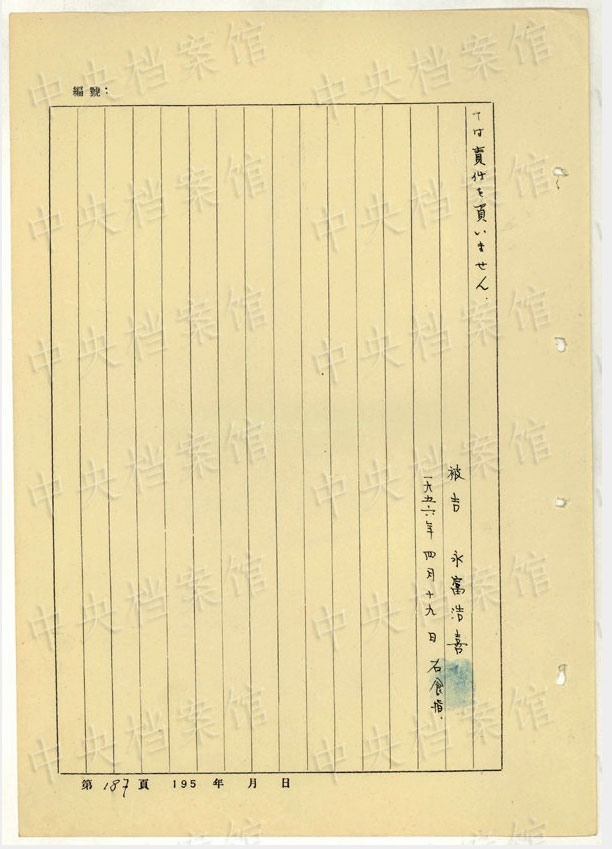 編號：
ては責任を負いません.
被告 永富浩喜
一九五六年 四月十九日 右食指.
第187頁 195 年 月 日
中央档案馆